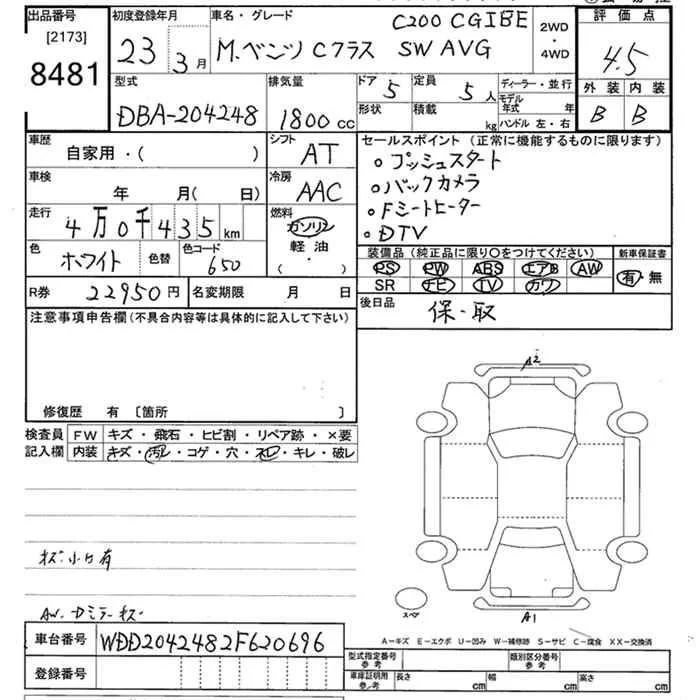 出品番号 初度登録年月 車名・グレード C200 CGIBE 2WD・4WD 評価点
[2173] 23年 3月 M.ベンツ Cクラス SW AVG 4.5
8481
型式 排気量 ドア 5 定員 5人 ディーラー・並行 外装 内装
DBA-204248 1800cc 形状 積載 kg モデル年式 年 B B
ハンドル 左・右
車歴 シフト セールスポイント (正常に機能するものに限ります)
自家用・( ) AT ・プッシュスタート
車検 冷房 ・バックカメラ
年 月( 日) AAC ・Fシートヒーター
走行 燃料 ・DTV
4万0千435km ガソリン
軽油・( )
色 色替 色コード 装備品 (純正品に限り○をつけてください) 新車保証書
ホワイト 650 PS PW ABS エアB AW 有・無
SR ナビ TV カワ
R券 22950円 名変期限 月 日 後日品 保・取
注意事項申告欄 (不具合内容等は具体的に記入して下さい)
修復歴 有 [箇所 ]
検査員記入欄 FW キズ・飛石・ヒビ割・リペア跡・×要
内装 キズ・汚レ・コゲ・穴・スレ・キレ・破レ
A2
キズ・小凹有
スペア
A1
AW・Dミラーキズ
A−キズ E−エクボ U−凹み W−補修跡 S−サビ C−腐食 XX−交換済
車台番号 WDD2042482F620696
型式指定番号 参考 類別区分番号 参考
登録番号 車庫証明用 参考 長さ cm 幅 cm 高さ cm